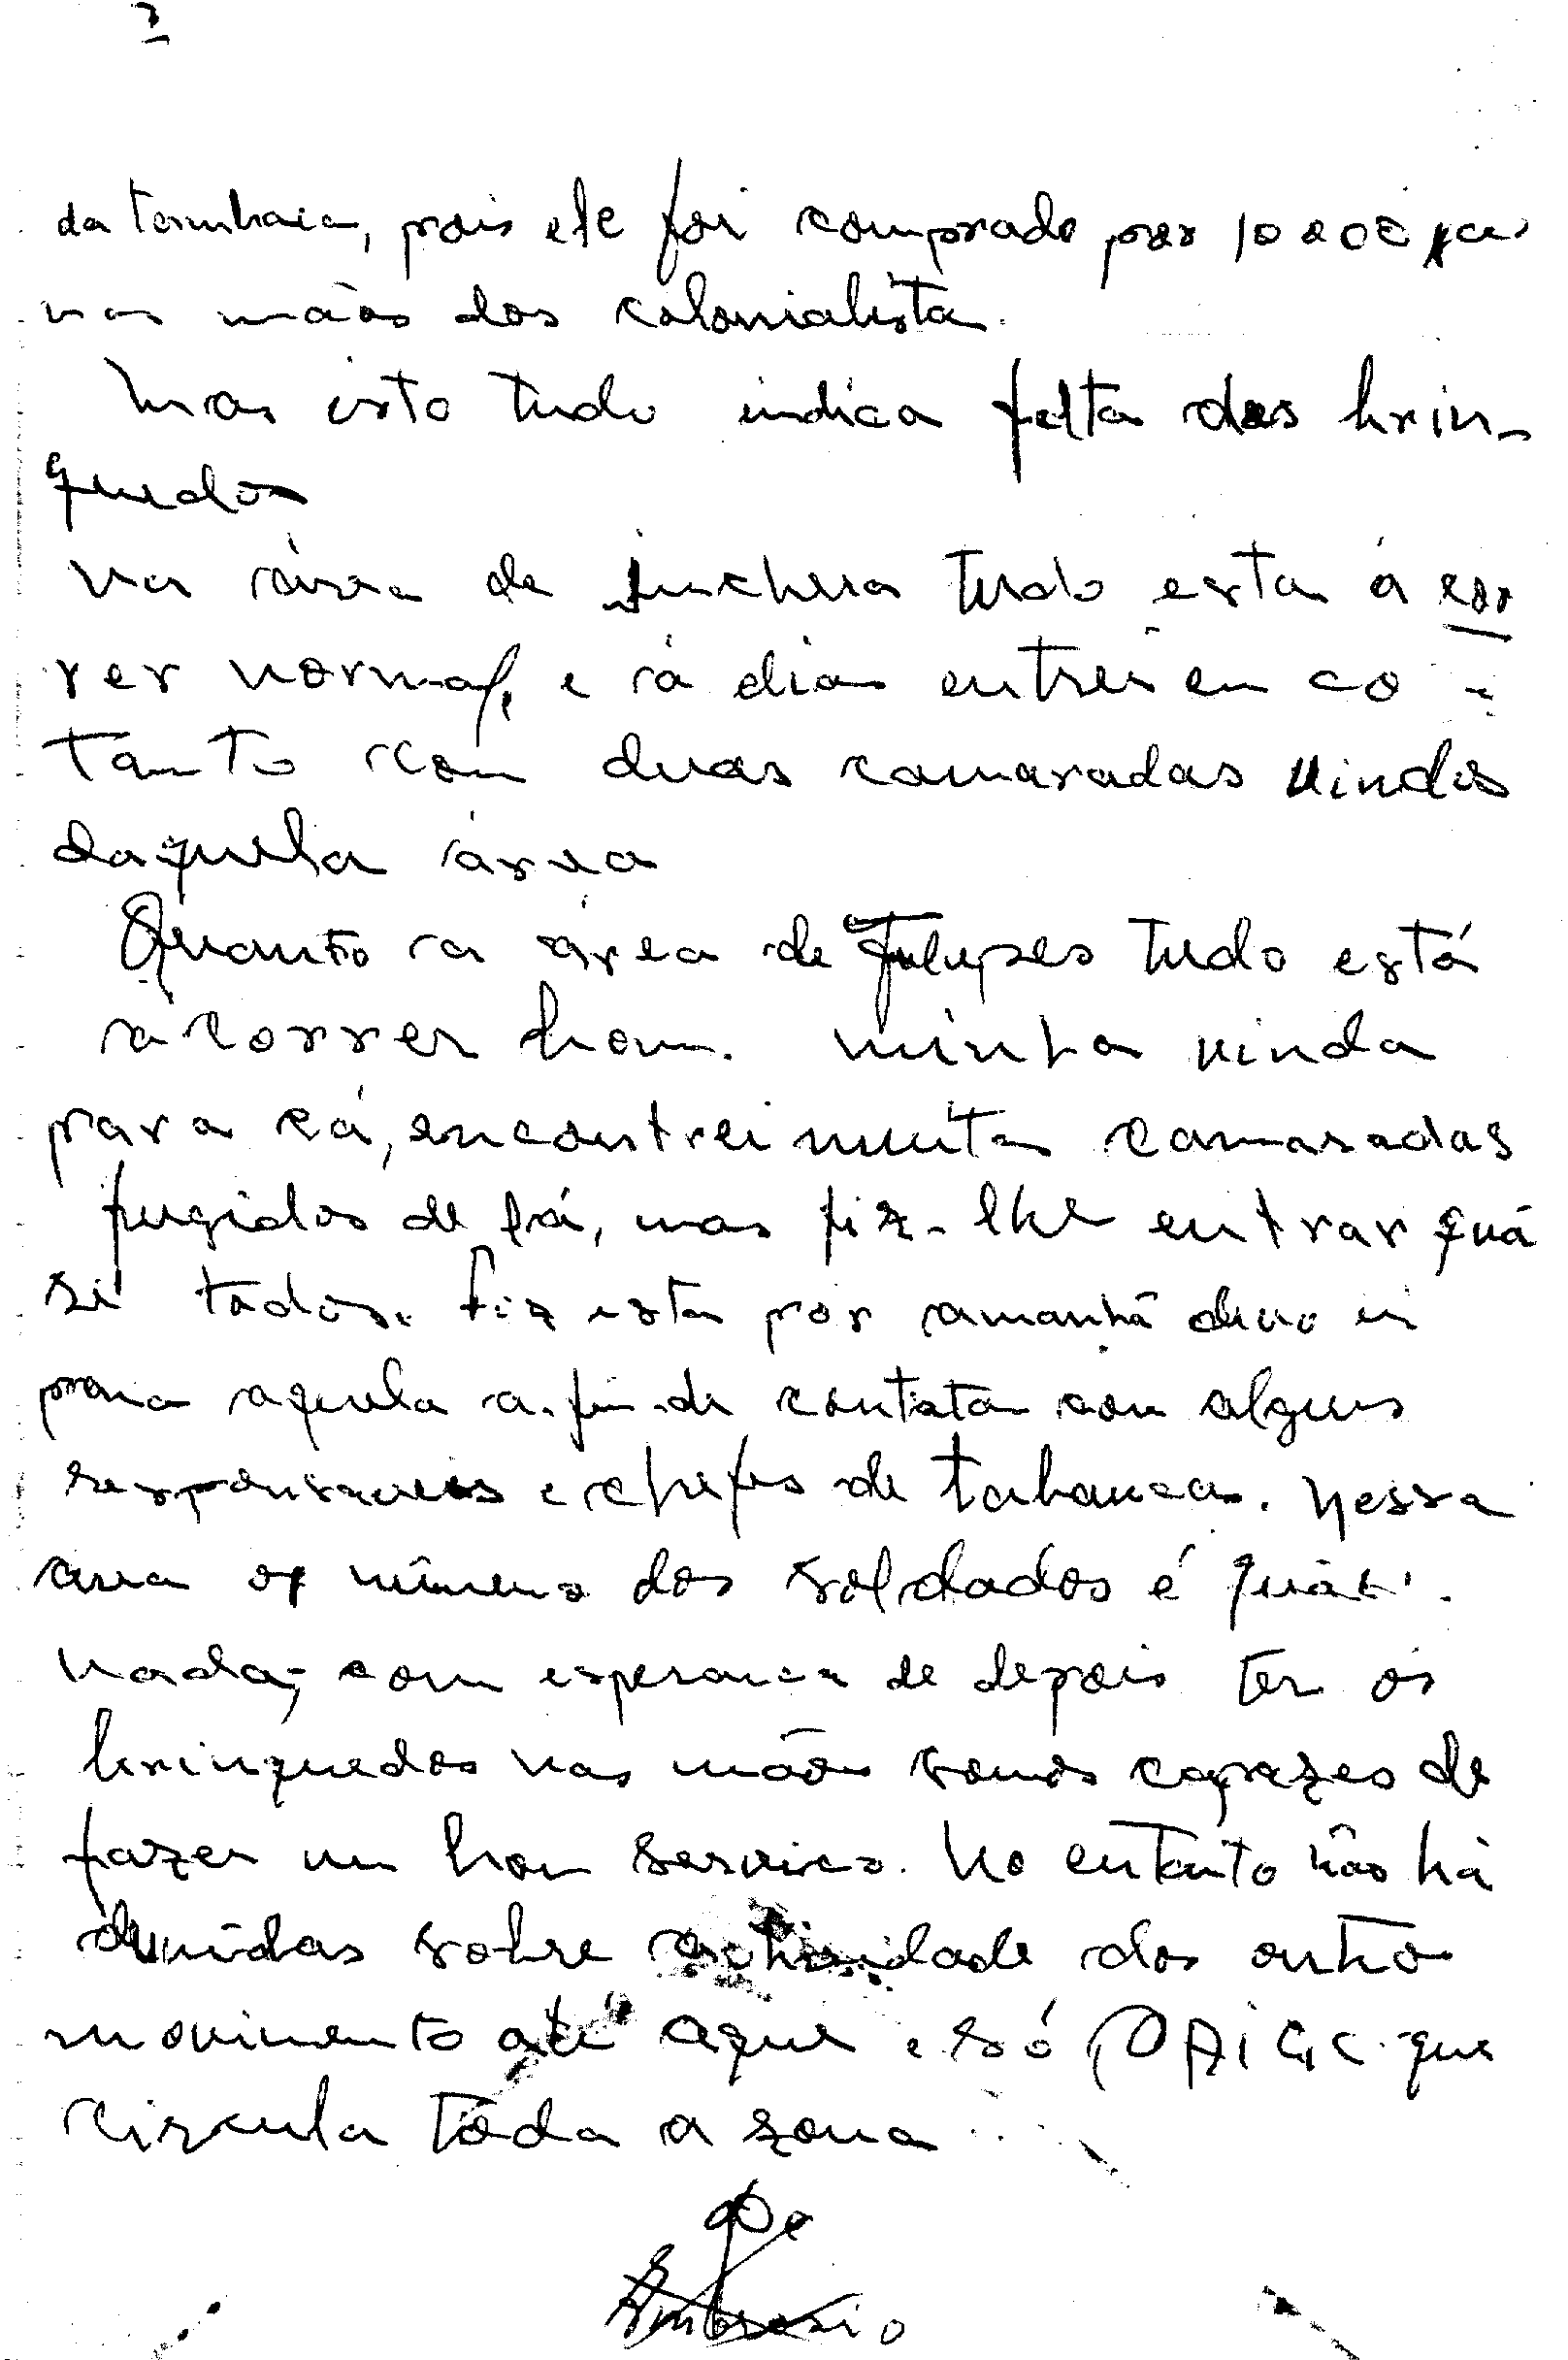 pois ele foi comprado por
mãos dos colonialista.
Mas isto tudo indica falta dos brin-
quedos
na área de tudo esta a cor
rer normal, e á dias entrei em co -
tanto com duas camaradas vindos
daquela área
Quanto a área de Felupes tudo está
a correr bom. minha vinda
para cá, encontrei muita camaradas
fugidos de lá, mas fiz-lhe entrar quá
si todos. Fiz esta por amanhã devo ir
para aquela a-fim-de contata com alguns
responsaveis e chefes de tabanca. nessa
area o número dos soldados é quási
nada, com esperança de depois ter os
brinquedos nas mãos somos capazes de
fazer um bom serviço. No entanto não há
duvidas sobre actividade dos outro
movimento até aqui e só PAIGC que
circula tôda a zona
Ambrosio